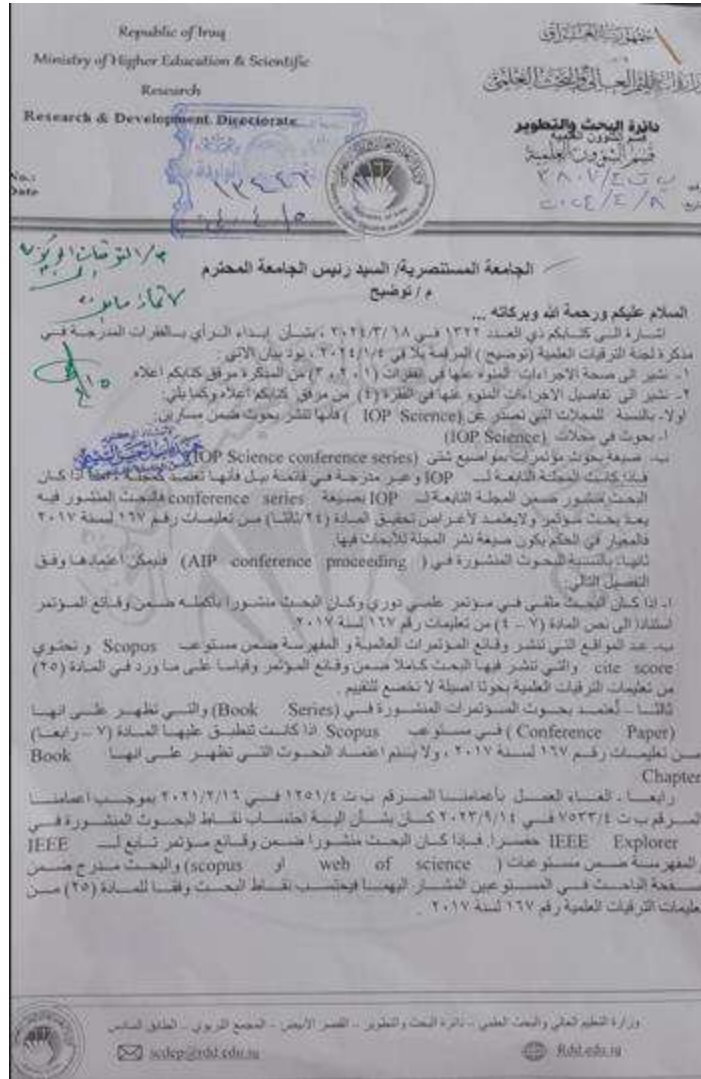 Republic of Iraq
Ministry of Higher Education & Scientific
Research
Research & Development Directorate
No.:
Date
دائرة البحث والتطوير
قسم الشؤون العلمية
قسم الشؤون العلمية
ب ت ٣٨٠٧/٤
٢٠٢٤/٤/٨
١٣٤٤٦
الجامعة المستنصرية/ السيد رئيس الجامعة المحترم
م / توضيح
السلام عليكم ورحمة الله وبركاته ...
اشارة الى كتابكم ذي العدد ١٣٢٢ في ٢٠٢٤/٣/١٨ ، بشأن إبداء الرأي بالفقرات المدرجة في
مذكرة لجنة الترقيات العلمية (توضيح ) المرقمة بلا في ٢٠٢٤/١/٤ ، نود بيان الاتي :
١- نشير الى صحة الاجراءات المنوه عنها في الفقرات (١ ، ٢ ، ٣) من المذكرة مرفق كتابكم اعلاه
٢- نشير الى تفاصيل الاجراءات المنوه عنها في الفقرة (٤) من مرفق كتابكم اعلاه وكما يلي:
اولا- بالنسبة للمجلات التي تصدر عن (IOP Science ) فأنها تنشر بحوث ضمن مسارين:
أ. بحوث في مجلات (IOP Science)
ب- صيغة بحوث مؤتمرات بمواضيع شتى (IOP Science conference series)
فإذا كانت المجلة التابعة لـ IOP وغير مدرجة في قائمة بيل فأنها تعتمد كمجلة ، اما اذا كان
البحث منشور ضمن المجلة التابعة لـ IOP بصيغة conference series فالبحث المنشور فيه
يعد بحث مؤتمر ولايعتمد لأغراض تحقيق المادة (٢٤/ثالثا) من تعليمات رقم ١٦٧ لسنة ٢٠١٧
فالمعيار في الحكم يكون صيغة نشر المجلة للأبحاث فيها.
ثانيا- بالنسبة للبحوث المنشورة في ( AIP conference proceeding) فيمكن اعتمادها وفق
التفصيل التالي:
ا- اذا كان البحث ملقى في مؤتمر علمي دوري وكان البحث منشورا بأكمله ضمن وقائع المؤتمر
استنادا الى نص المادة (٧ – ٤) من تعليمات رقم ١٦٧ لسنة ٢٠١٧
ب- عد المواقع التي تنشر وقائع المؤتمرات العالمية و المفهرسة ضمن مستوعب Scopus و تحتوي
cite score والتي تنشر فيها البحث كاملا ضمن وقائع المؤتمر وقياسا على ما ورد في المادة (٢٥)
من تعليمات الترقيات العلمية بحوثا اصيلة لا تخضع للتقييم .
ثالثا – تُعتمد بحوث المؤتمرات المنشورة في (Book Series) والتي تظهر على انها
(Conference Paper ) في مستوعب Scopus اذا كانت تنطبق عليها المادة (٧ – رابعا)
من تعليمات رقم ١٦٧ لسنة ٢٠١٧ ، ولا يتم اعتماد البحوث التي تظهر على انها Book
Chapter
رابعا ، الغاء العمل بأعمامنا المرقم ب ت ١٢٥١/٤ في ٢٠٢١/٢/١٦ بموجب اعمامنا
المرقم ب ت ٧٥٣٣/٤ في ٢٠٢٣/٩/١٤ كان بشأن الية احتساب نقاط البحوث المنشورة في
IEEE Explorer حصرا. فإذا كان البحث منشورا ضمن وقائع مؤتمر تابع لـ IEEE
والمفهرسة ضمن مستوعبات ( web of science او scopus) والبحث مدرج ضمن
صفحة الباحث في المستوعبين المشار اليهما فيحتسب نقاط البحث وفقا للمادة (٢٥) من
تعليمات الترقيات العلمية رقم ١٦٧ لسنة ٢٠١٧ .
وزارة التعليم العالي والبحث العلمي – دائرة البحث والتطوير – القصر الأبيض – المجمع التربوي – الطابق السادس
scdep@rdd.edu.iq
Rdd.edu.iq